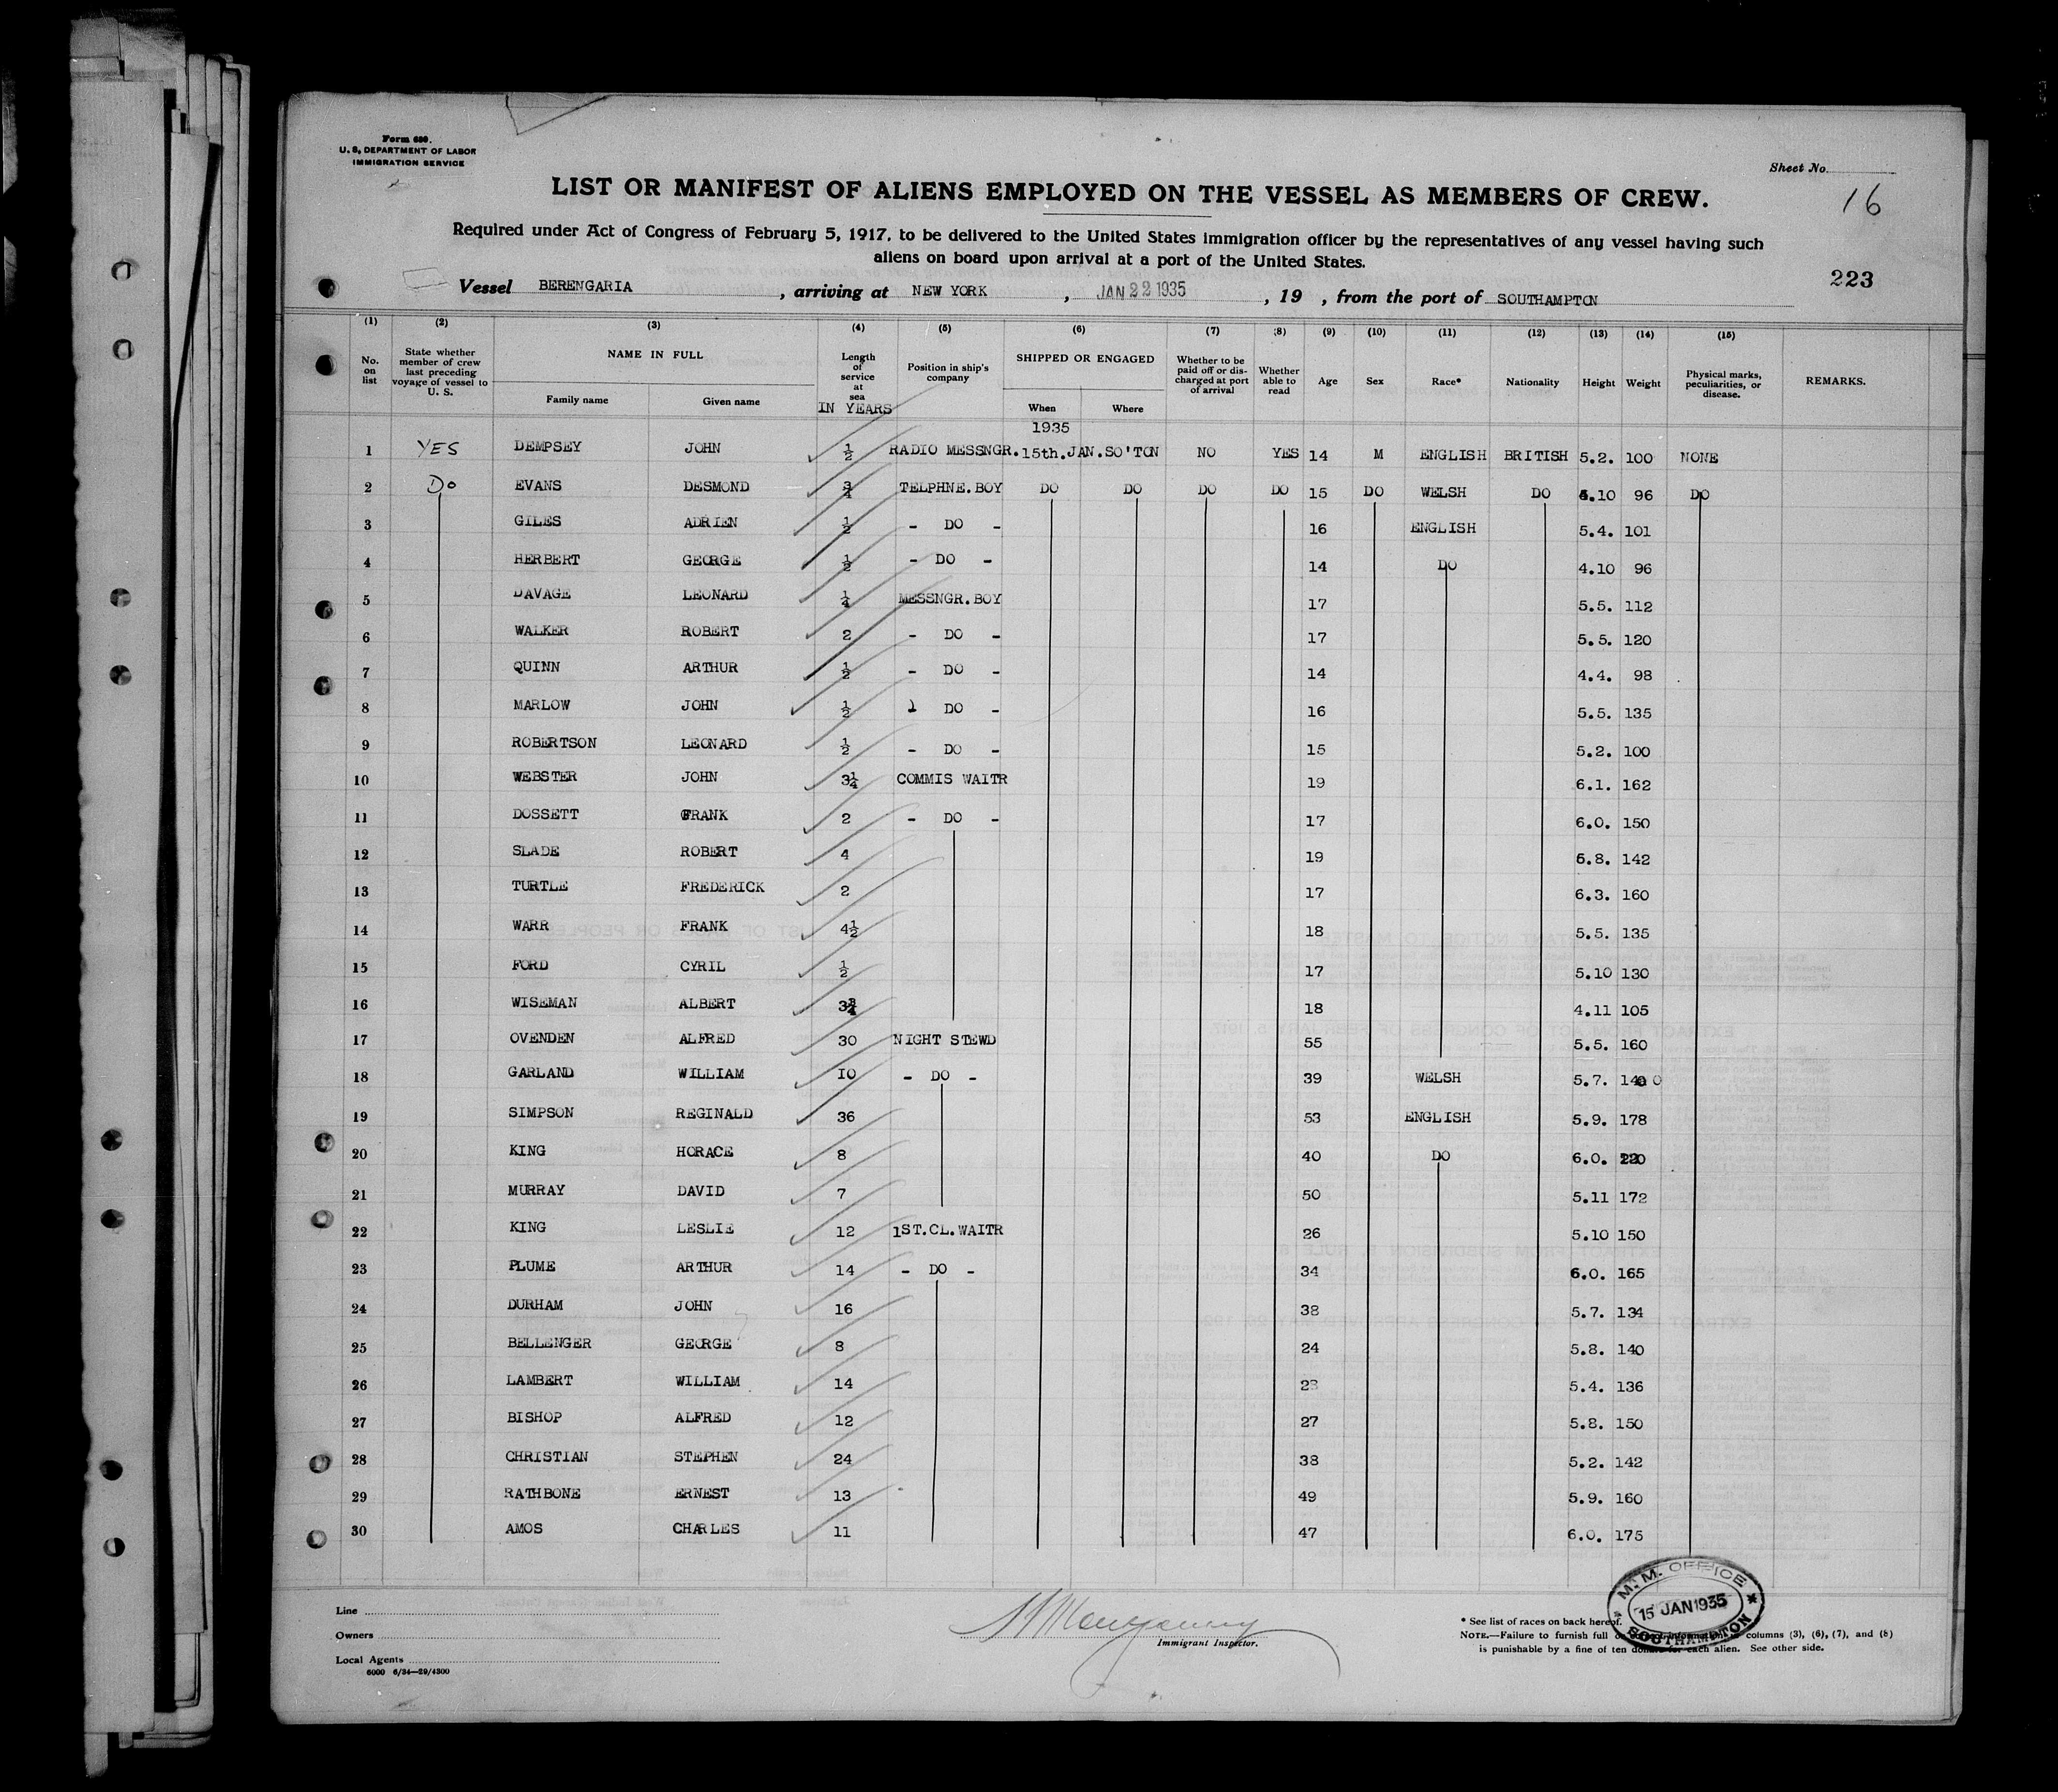 Form 680.
U. S. DEPARTMENT OF LABOR
IMMIGRATION SERVICE
Sheet No.
16
LIST OR MANIFEST OF ALIENS EMPLOYED ON THE VESSEL AS MEMBERS OF CREW.
Required under Act of Congress of February 5, 1917, to be delivered to the United States immigration officer by the representatives of any vessel having such
aliens on board upon arrival at a port of the United States.
223
Vessel BERENGARIA , arriving at NEW YORK , JAN 22 1935 , 19 , from the port of SOUTHAMPTON
(1) (2) (3) (4) (5) (6) (7) (8) (9) (10) (11) (12) (13) (14) (15)
No. on list State whether member of crew last preceding voyage of vessel to U. S. NAME IN FULL Family name Given name Length of service at sea IN YEARS Position in ship's company SHIPPED OR ENGAGED When Where Whether to be paid off or discharged at port of arrival Whether able to read Age Sex Race* Nationality Height Weight Physical marks, peculiarities, or disease. REMARKS.
1935
1 YES DEMPSEY JOHN ½ RADIO MESSNGR. 15th.JAN. SO'TON NO YES 14 M ENGLISH BRITISH 5.2. 100 NONE
2 Do EVANS DESMOND ¾ TELPHNE.BOY DO DO DO DO 15 DO WELSH DO 4.10 96 DO
3 GILES ADRIEN ½ - DO - 16 ENGLISH 5.4. 101
4 HERBERT GEORGE ½ - DO - 14 DO 4.10 96
5 DAVAGE LEONARD ¼ MESSNGR.BOY 17 5.5. 112
6 WALKER ROBERT 2 - DO - 17 5.5. 120
7 QUINN ARTHUR ½ - DO - 14 4.4. 98
8 MARLOW JOHN ½ DO - 16 5.5. 135
9 ROBERTSON LEONARD ½ - DO - 15 5.2. 100
10 WEBSTER JOHN 3¼ COMMIS WAITR 19 6.1. 162
11 DOSSETT FRANK 2 - DO - 17 6.0. 150
12 SLADE ROBERT 4 19 5.8. 142
13 TURTLE FREDERICK 2 17 6.3. 160
14 WARR FRANK 4½ 18 5.5. 135
15 FORD CYRIL ½ 17 5.10 130
16 WISEMAN ALBERT 3¾ 18 4.11 105
17 OVENDEN ALFRED 30 NIGHT STEWD 55 5.5. 160
18 GARLAND WILLIAM 10 - DO - 39 WELSH 5.7. 140
19 SIMPSON REGINALD 36 53 ENGLISH 5.9. 178
20 KING HORACE 8 40 DO 6.0. 220
21 MURRAY DAVID 7 50 5.11 172
22 KING LESLIE 12 1ST.CL.WAITR 26 5.10 150
23 PLUME ARTHUR 14 - DO - 34 6.0. 165
24 DURHAM JOHN 16 38 5.7. 134
25 BELLENGER GEORGE 8 24 5.8. 140
26 LAMBERT WILLIAM 14 28 5.4. 136
27 BISHOP ALFRED 12 27 5.8. 150
28 CHRISTIAN STEPHEN 24 38 5.2. 142
29 RATHBONE ERNEST 13 49 5.9. 160
30 AMOS CHARLES 11 47 6.0. 175
Line
Owners
Local Agents
6000 6/34—29/4300
Immigrant Inspector.
M. M. OFFICE
15 JAN 1935
SOUTHAMPTON
* See list of races on back hereof.
NOTE.—Failure to furnish full columns (3), (6), (7), and (8)
is punishable by a fine of ten dollars for each alien. See other side.